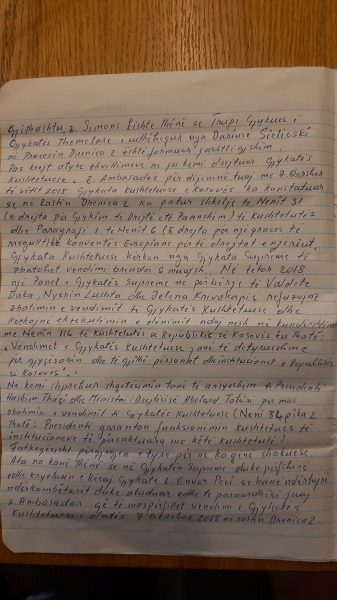 Gjithashtu, z. Simons kishte thënë se Trupi Gjykues i
Gjykatës Themelore i udhëhequr nga Dariusz Sielicki
në Procesin Drenica 2 është formuar jashtligjshëm.
Pas krejt atyre zhvillimeve ne ju kemi drejtuar Gjykatës
Kushtetuese. Z. Ambasador për dijeninë tuaj me 9 Qershor
të vitit 2018 Gjykata Kushtetuese e Kosovës ka konstatuar
se në Rastin Drenica 2 ka patur shkelje të Nenit 31
(e drejta për Gjykim të Drejtë e të Paanshëm) të Kushtetutës
dhe Paragrafi 1 të Nenit 6 (E drejta për një proces të
rregullt) të Konventës Evropiane për të drejtat e njeriut.
Gjykata Kushtetuese kërkon nga Gjykata Supreme të
zbatohet vendimi brenda 6 muajsh. Në tetor 2018
një Panel i Gjykatës Supreme në përbërje të Valdete
Daka, Nysrin Lushta dhe Jelena Krivokapiq refuzojnë
zbatimin e vendimit të Gjykatës Kushtetuese dhe
me Nenin 116 të Kushtetutës së Republikës së Kosovës ku thotë:
"Vendimet e Gjykatës Kushtetuese janë të detyrueshme
për gjyqësorin dhe të gjithë personat dhe institucionet e Republikës
së Kosovës".
Ne kemi shprehur shqetësimin tonë të arsyeshëm te Presidenti
Hashim Thaçi dhe Ministri i Drejtësisë Abelard Tahiri për mos
zbatimin e vendimit të Gjykatës Kushtetuese (Neni 84 pika 2
thotë: Presidenti garanton funksionimin Kushtetues të
institucioneve të përcaktuara me këtë Kushtetutë)
Fatkeqësisht përgjigja e tyre për ne ka qenë shokuese.
Ata na kanë thënë se në Gjykatën Supreme duke përfshirë
edhe kryetarin e kësaj Gjykate z Enver Peci se kanë ndërhyrë
ndërkombëtarët duke aluduar edhe te paraardhësi juaj
z Ambasador që të mos përfillet vendimi i Gjykatës
Kushtetuese i datës 9 2018 në rastin Drenica 2.